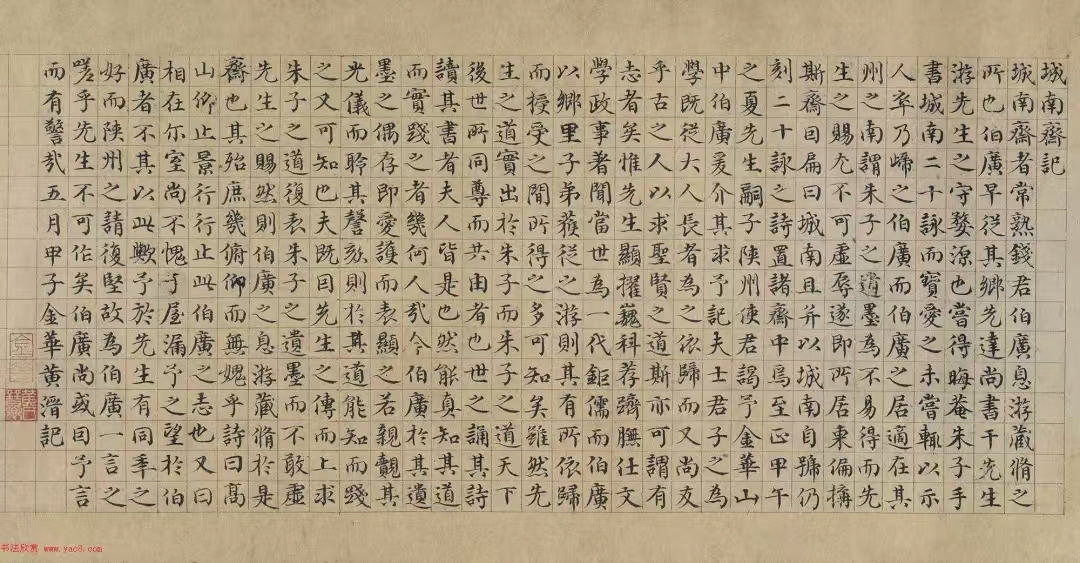 城南齋記
城南齋者常熟錢君伯廣息游藏脩之
所也伯廣早從其鄉先達尚書干先生
游先生之守婺源也嘗得晦菴朱子手
書城南二十詠而寶愛之未嘗輒以示
人卒乃歸之伯廣而伯廣之居適在其
州之南謂朱子之遺墨為不易得而先
生之賜尤不可虛辱遂即所居東偏搆
斯齋因扁曰城南且并以城南自號仍
刻二十詠之詩置諸齋中焉至正甲午
之夏先生嗣子陝州使君謁予金華山
中伯廣爰介其求予記夫士君子之為
學既從大人長者為之依歸而又尚友
乎古之人以求聖賢之道斯亦可謂有
志者矣惟先生顯擢巍科荐躋膴仕文
學政事著聞當世為一代鉅儒而伯廣
以鄉里子弟獲從之游則其有所依歸
而授受之間所得之多可知矣雖然先
生之道實出於朱子而朱子之道天下
後世所同尊而共由者也世之誦其詩
讀其書者夫人皆是也然能真知其道
而實踐之者幾何人哉今伯廣於其遺
墨之偶存即愛護而表顯之若親覿其
光儀而聆其謦欬則於其道能知而踐
之又可知也夫既因先生之傳而上求
朱子之道復表朱子之遺墨而不敢虛
先生之賜然則伯廣之息游藏脩於是
齋也其殆庶幾俯仰而無媿乎詩曰高
山仰止景行行止此伯廣之志也又曰
相在尔室尚不愧于屋漏予之望於伯
廣者不其以此歟予於先生有同年之
好而陝州之請復堅故為伯廣一言之
嗟乎先生不可作矣伯廣尚或因予言
而有警哉五月甲子金華黃溍記
书法欣赏 www.yac8.com